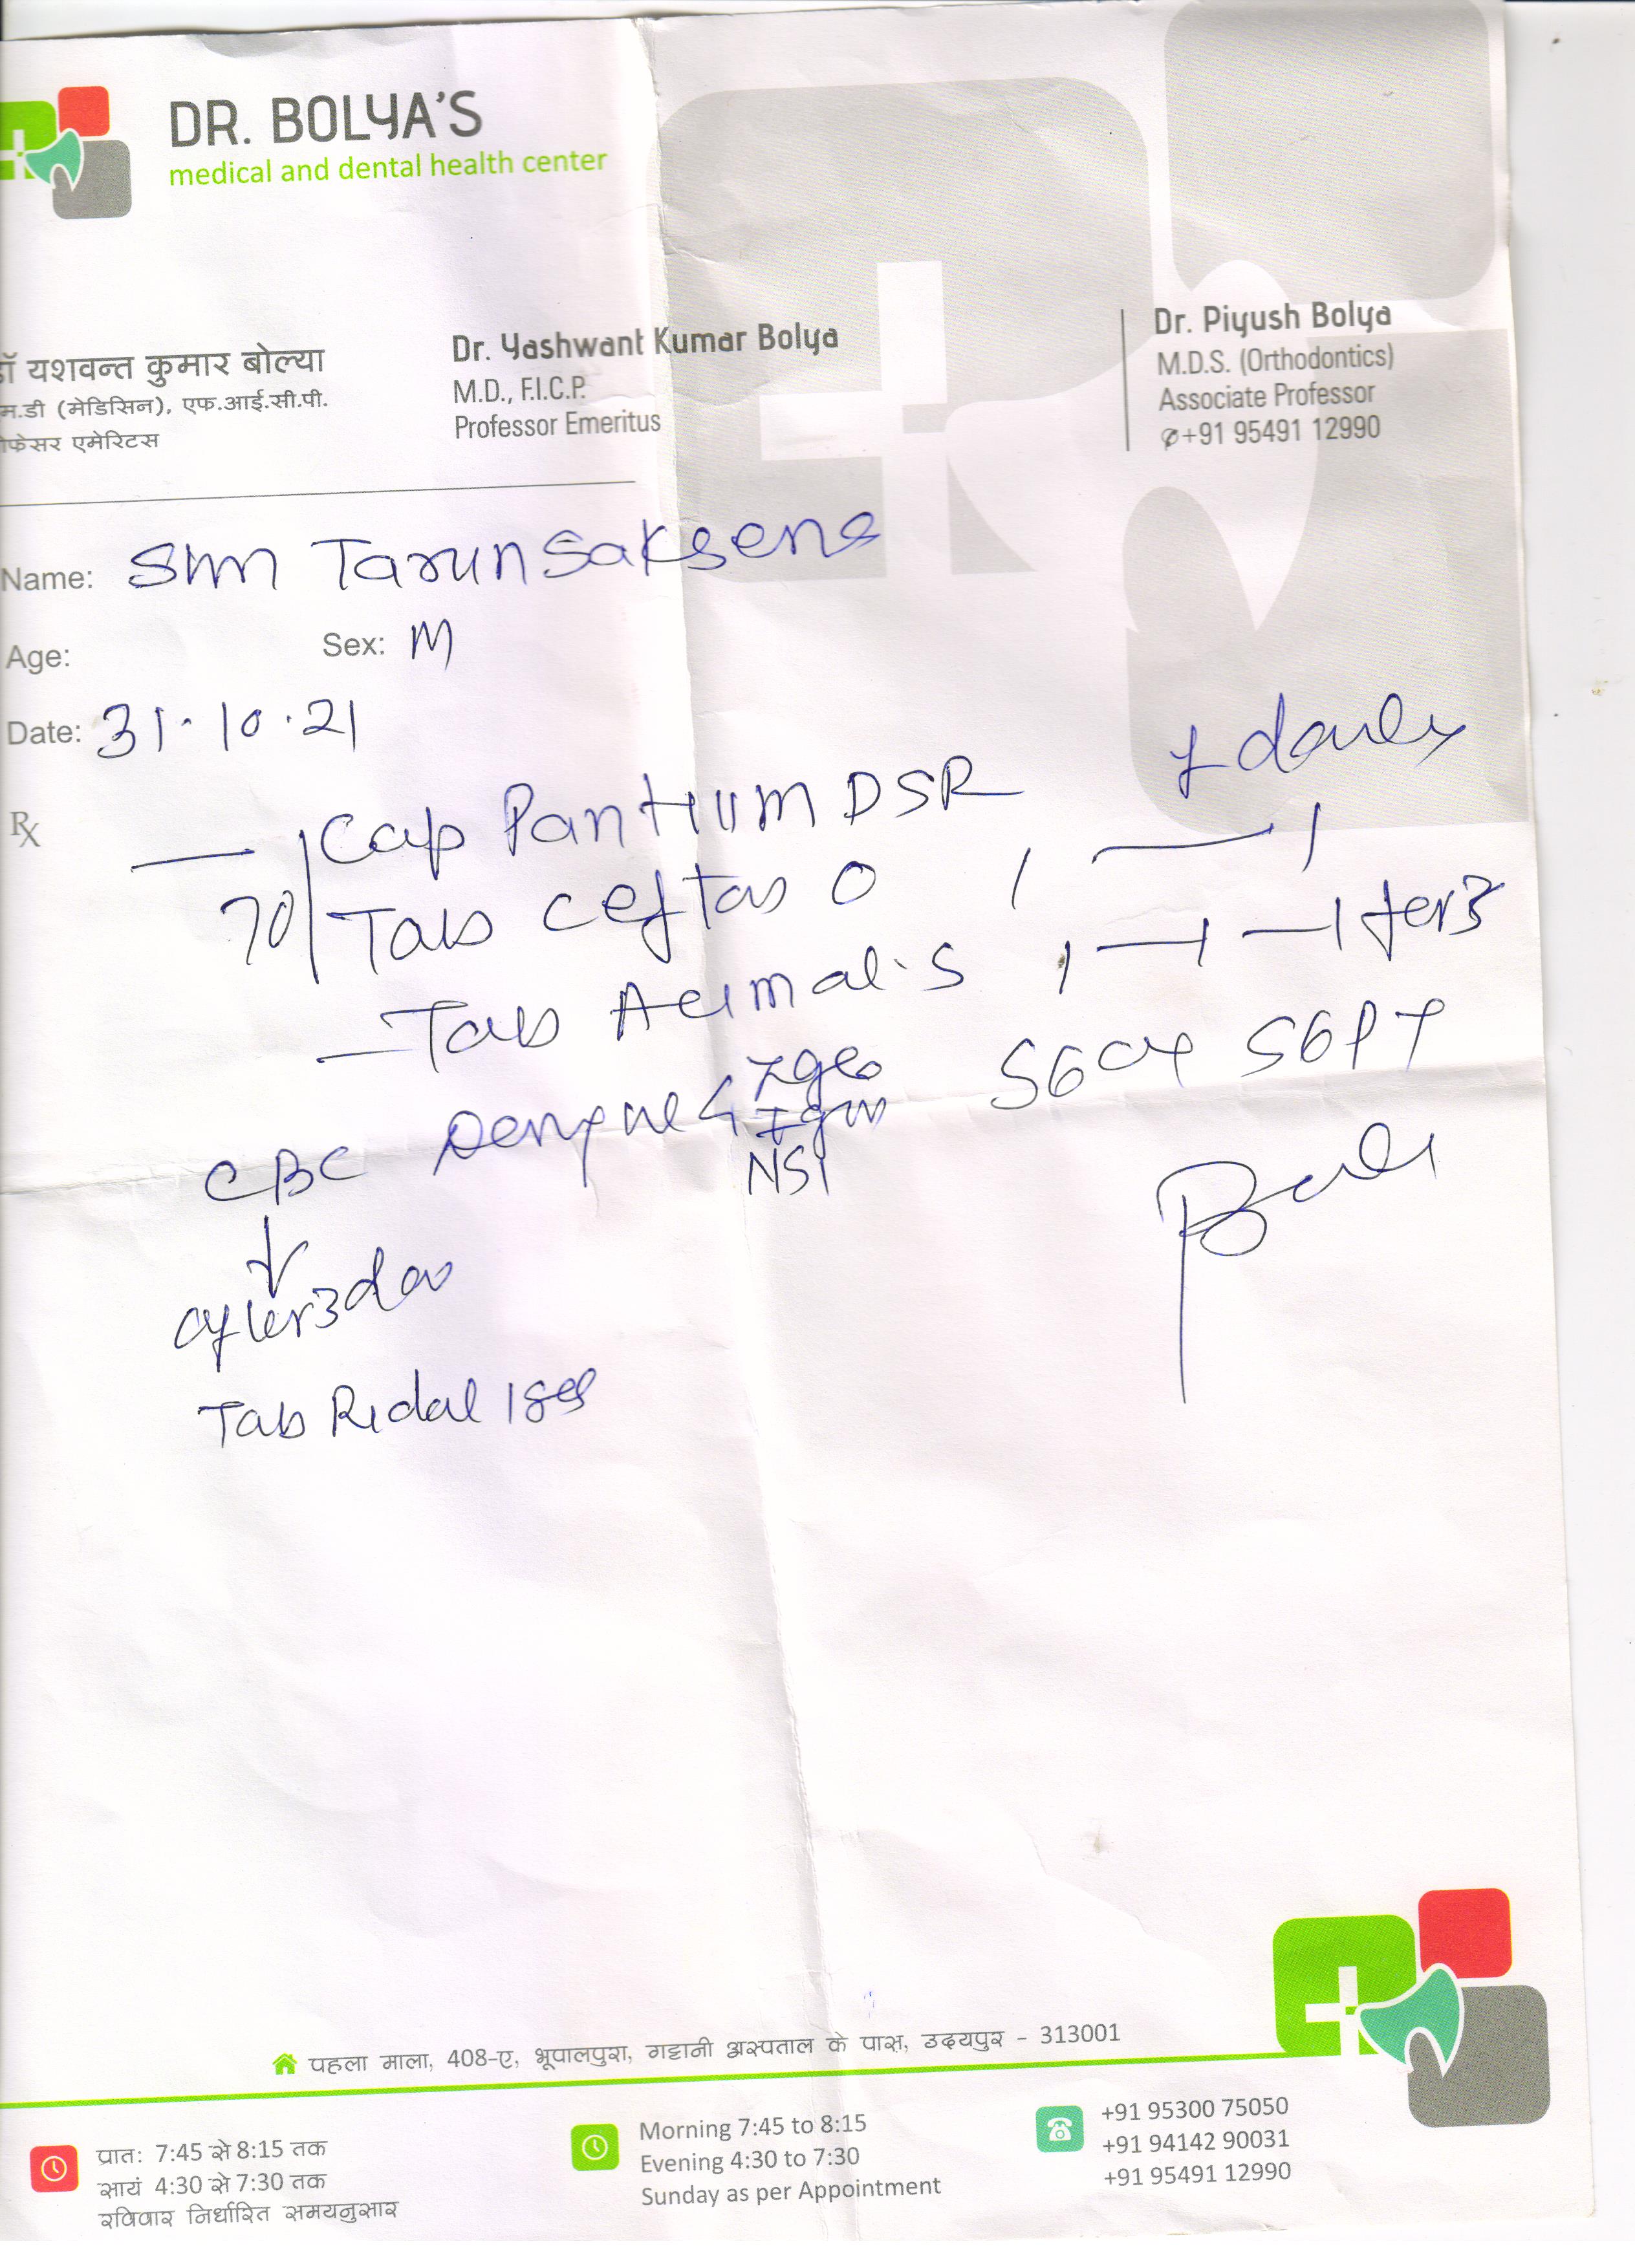 DR. BOLYA'S
medical and dental health center
डॉ यशवन्त कुमार बोल्या
म.डी (मेडिसिन), एफ.आई.सी.पी.
फेसर एमेरिटस
Dr. Yashwant Kumar Bolya
M.D., F.I.C.P.
Professor Emeritus
Dr. Piyush Bolya
M.D.S. (Orthodontics)
Associate Professor
+91 95491 12990
Name: Tarun Saksena
Age: Sex: M
Date: 31.10.21
Rx
Cap DSR 1 daily
70 Tab Ceftas O 1 — 1
Tab 1 — 1 — 1
CBC Dengue IgG SGOT SGPT
IgM
NS1
after 3 day
Tab
पहला माला, 408-ए, भूपालपुरा, गट्टानी अस्पताल के पास, उदयपुर - 313001
प्रातः 7:45 से 8:15 तक
सायं 4:30 से 7:30 तक
रविवार निर्धारित समयनुसार
Morning 7:45 to 8:15
Evening 4:30 to 7:30
Sunday as per Appointment
+91 95300 75050
+91 94142 90031
+91 95491 12990